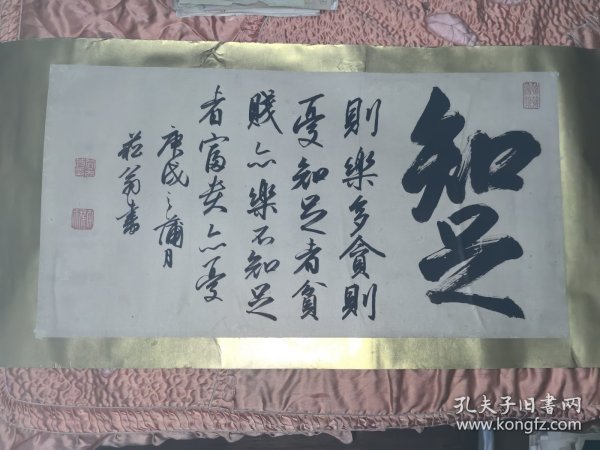 知足
則樂多貪則
憂知足者貧
賤亦樂不知足
者富貴亦憂
庚戌之蒲月
菘翁書
孔夫子旧書网
www.kongfz.com